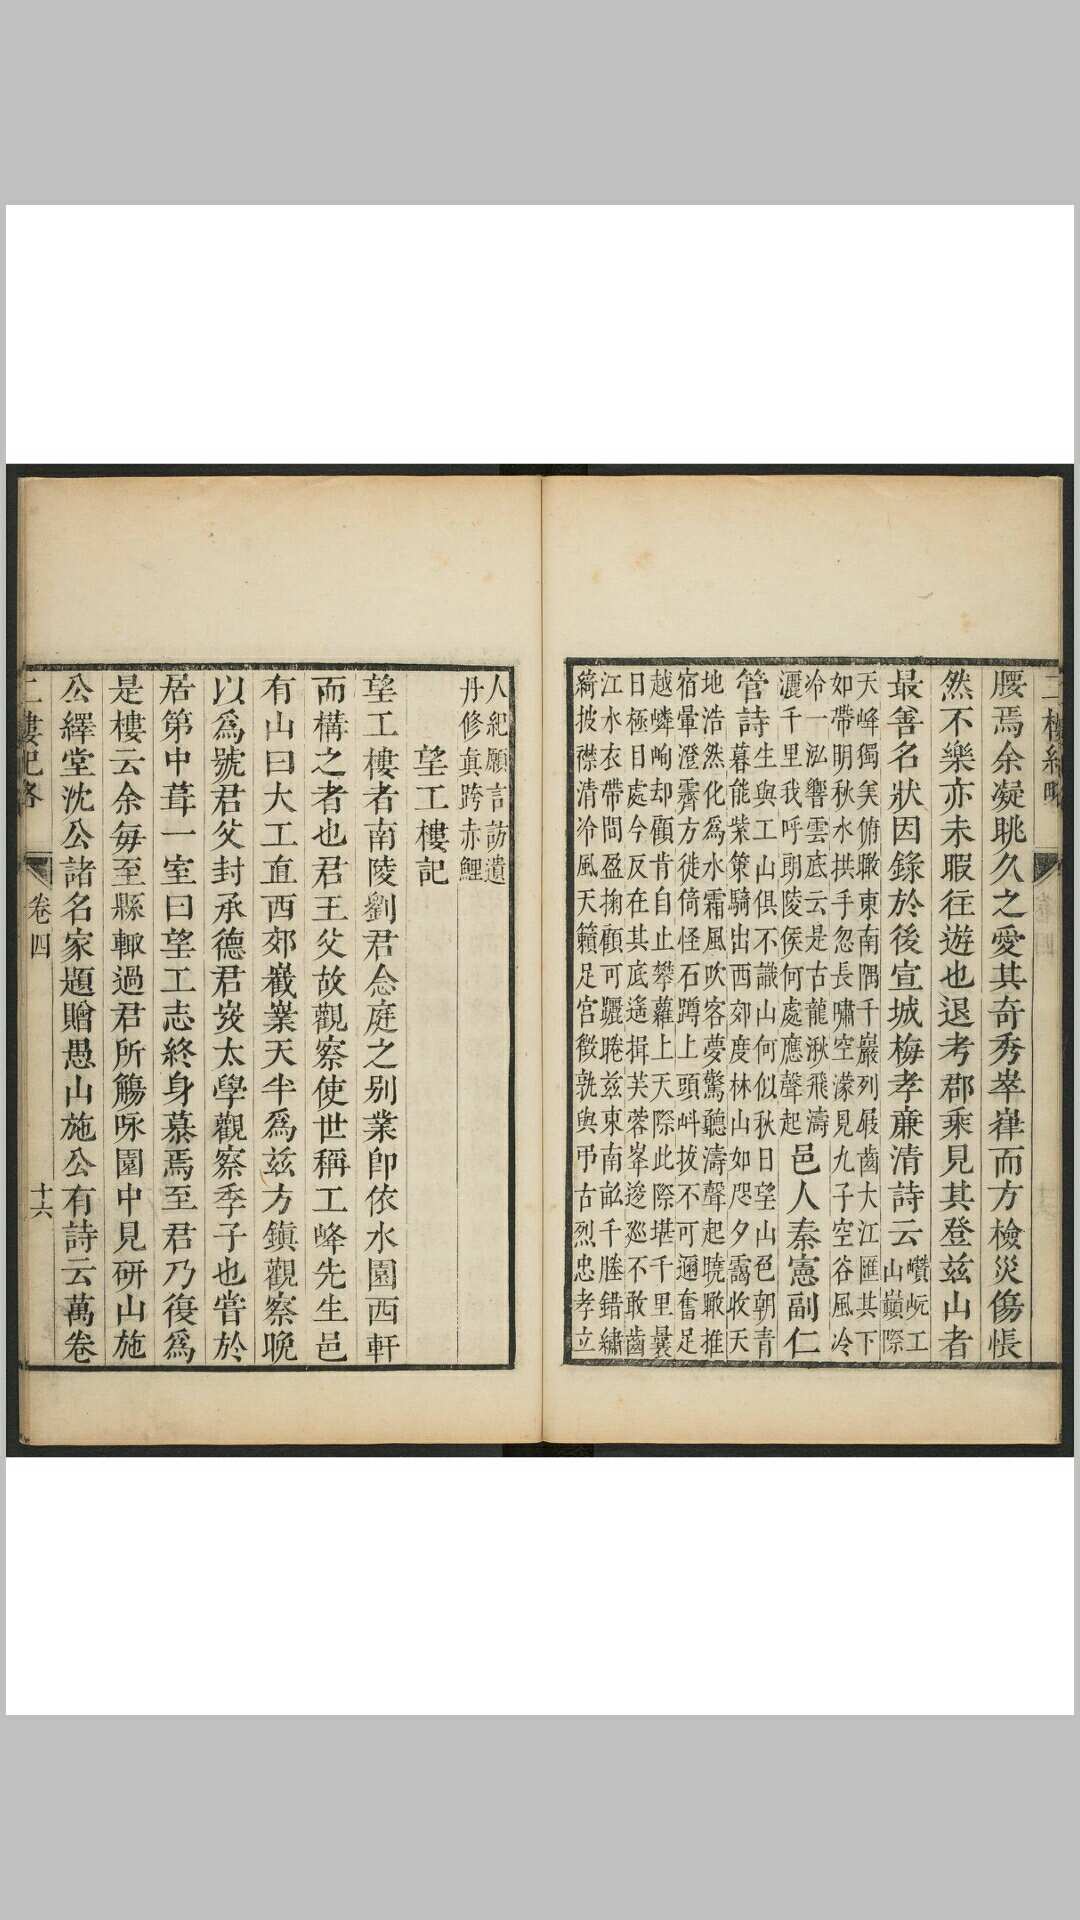 二樓紀略
腰焉余凝眺久之愛其奇秀崒嵂而方檢災傷悵
然不樂亦未暇往遊也退考郡乘見其登兹山者
最善名狀因錄於後宣城梅孝亷清詩云巑岏工山巔際
天峰獨美俯瞰東南隅千巖列屐齒大江匯其下
如帶明秋水拱手忽長嘯空濛見九子空谷風冷
冷一泓響雲底云是古龍湫飛濤
灑千里我呼郎陵侯何處應聲起邑人秦憲副仁
管詩生與工山俱不識山何似秋日望山色朝青
暮能紫策騎出西郊度林山如咫夕靄收天
地浩然化爲水霜風吹客夢驚聽濤聲起曉瞰推
宿暈澄霽方徙倚怪石蹲上頭㪷拔不可邇奮足
越嶙峋却顧肯自止攀蘿上天際此際堪千里曩
日極目處今反在其底遙揖芙蓉峯逡廵不敢齒
江水衣帶間盈掬顧可躧睠兹東南畝千塍錯繡
綺披襟清冷風天籟足宮徵孰與弔古烈忠孝立
人紀願言訪遺
丹修眞跨赤鯉
望工樓記
望工樓者南陵劉君念庭之别業卽依水園西軒
而構之者也君王父故觀察使世稱工峰先生邑
有山曰大工直西郊嶻嶪天半爲兹方鎮觀察晚
以爲號君父封承德君崁太學觀察季子也嘗於
居第中葺一室曰望工志終身慕焉至君乃復爲
是樓云余每至縣輙過君所觴咏園中見研山施
公繹堂沈公諸名家題贈愚山施公有詩云萬卷
二樓紀略
卷四
十六